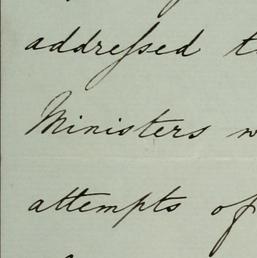 addressed
Ministers
attempts of